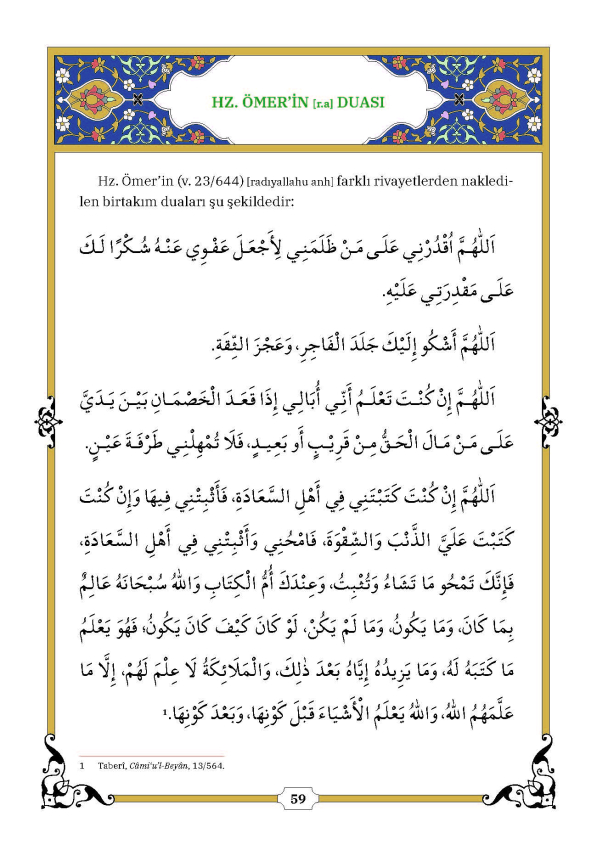 HZ. ÖMER’İN [r.a] DUASI
Hz. Ömer’in (v. 23/644) [radıyallahu anh] farklı rivayetlerden nakledi-
len birtakım duaları şu şekildedir:
اَللّٰهُمَّ اُقْدُرْنِي عَلَى مَنْ ظَلَمَنِي لِأَجْعَلَ عَفْوِي عَنْهُ شُكْرًا لَكَ
عَلَى مَقْدِرَتِي عَلَيْهِ.
اَللّٰهُمَّ أَشْكُو إِلَيْكَ جَلَدَ الْفَاجِرِ، وَعَجْزَ الثِّقَةِ.
اَللّٰهُمَّ إِنْ كُنْتَ تَعْلَمُ أَنِّي أُبَالِي إِذَا قَعَدَ الْخَصْمَانِ بَيْنَ يَدَيَّ
عَلَى مَنْ مَالَ الْحَقُّ مِنْ قَرِيْبٍ أَو بَعِيدٍ، فَلَا تُمْهِلْنِي طَرْفَةَ عَيْنٍ.
اَللّٰهُمَّ إِنْ كُنْتَ كَتَبْتَنِي فِي أَهْلِ السَّعَادَةِ، فَأَثْبِتْنِي فِيهَا وَإِنْ كُنْتَ
كَتَبْتَ عَلَيَّ الذَّنْبَ وَالشِّقْوَةَ، فَامْحُنِي وَأَثْبِتْنِي فِي أَهْلِ السَّعَادَةِ،
فَإِنَّكَ تَمْحُو مَا تَشَاءُ وَتُثْبِتُ، وَعِنْدَكَ أُمُّ الْكِتَابِ وَاللهُ سُبْحَانَهُ عَالِمٌ
بِمَا كَانَ، وَمَا يَكُونُ، وَمَا لَمْ يَكُنْ، لَوْ كَانَ كَيْفَ كَانَ يَكُونُ؛ فَهُوَ يَعْلَمُ
مَا كَتَبَهُ لَهُ، وَمَا يَزِيدُهُ إِيَّاهُ بَعْدَ ذٰلِكَ، وَالْمَلَائِكَةُ لَا عِلْمَ لَهُمْ، إِلَّا مَا
عَلَّمَهُمُ اللهُ، وَاللهُ يَعْلَمُ الْأَشْيَاءَ قَبْلَ كَوْنِهَا، وَبَعْدَ كَوْنِهَا.¹
1 Taberî, Câmi‘u’l-Beyân, 13/564.
59